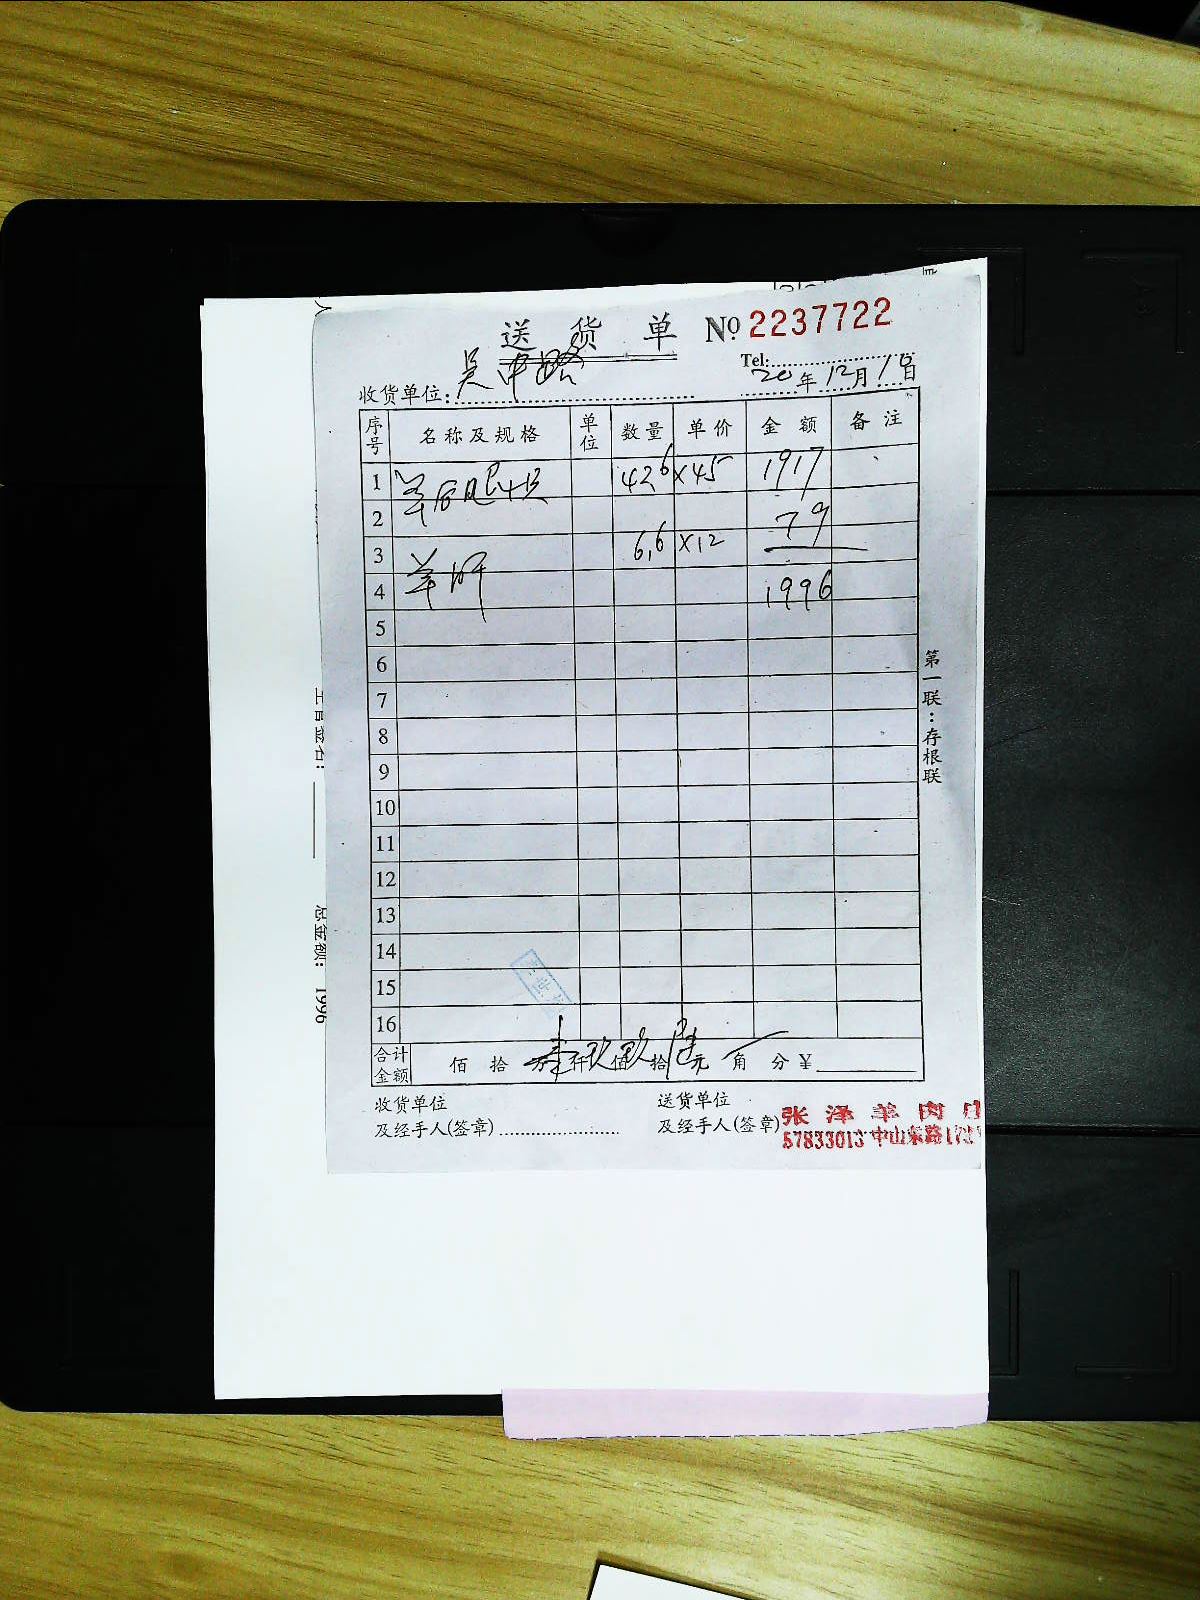 送货单 № 2237722
Tel:
收货单位: 吴中路 20年12月1日
序号 名称及规格 单位 数量 单价 金额 备注
1 羊后腿 42.6 ×45 1917
2 79
3 羊肝 6.6 ×12
4 1996
5
6
7
8
9
10
11
12
13
14
15
16
合计金额 佰 拾 万壹仟玖佰玖拾陆元 角 分 ¥
收货单位 送货单位
及经手人(签章) 及经手人(签章)
张泽羊肉
57833013 中山东路
第一联:存根联
总金额: 1996